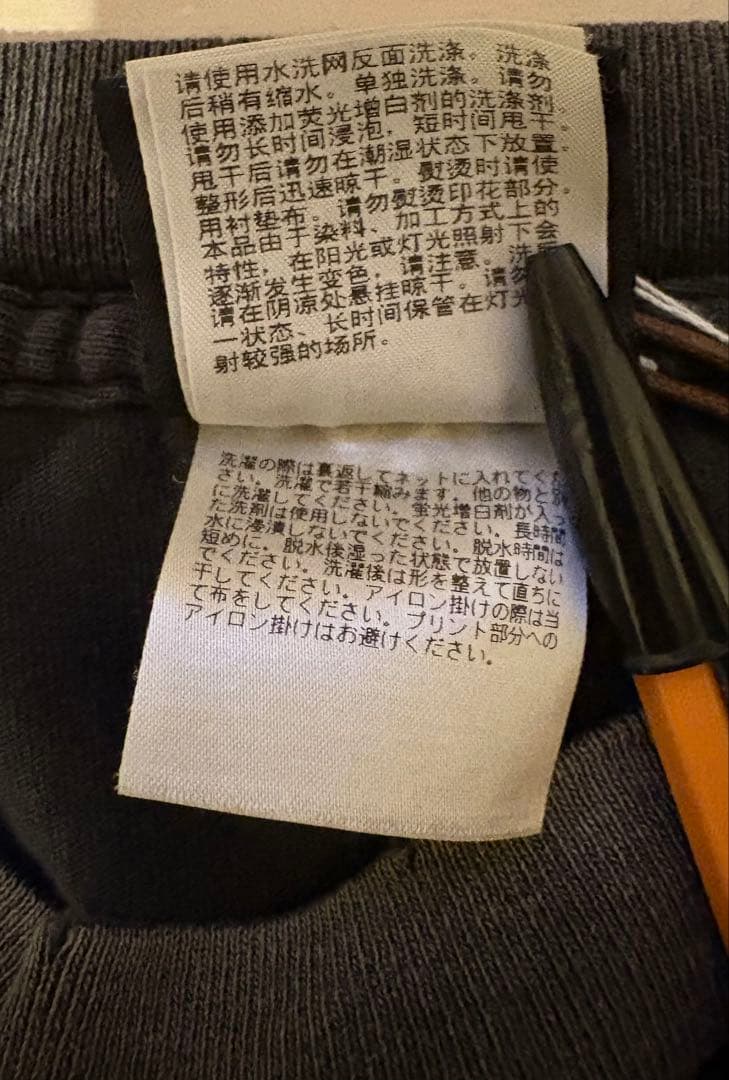 请使用水洗网反面洗涤。洗涤
后稍有缩水。单独洗涤。请勿
使用添加荧光增白剂的洗涤剂。
请勿长时间浸泡，短时间甩干。
甩干后请勿在潮湿状态下放置。
整形后迅速晾干。熨烫时请使
用衬垫布。请勿熨烫印花部分。
本品由于染料、加工方式上的
特性，在阳光或灯光照射下会
逐渐发生变色，请注意。洗
请在阴凉处悬挂晾干。请勿
一状态、长时间保管在灯光
射较强的场所。
洗濯の際は裏返してネットに入れてくだ
さい。洗濯で若干縮みます。他の物と別
に洗濯してください。蛍光増白剤が入っ
た洗剤は使用しないでください。長時間
水に浸漬しないでください。脱水時間は
短めに。脱水後湿った状態で放置しない
でください。洗濯後は形を整えて直ちに
干してください。アイロン掛けの際は当
て布をしてください。プリント部分への
アイロン掛けはお避けください。